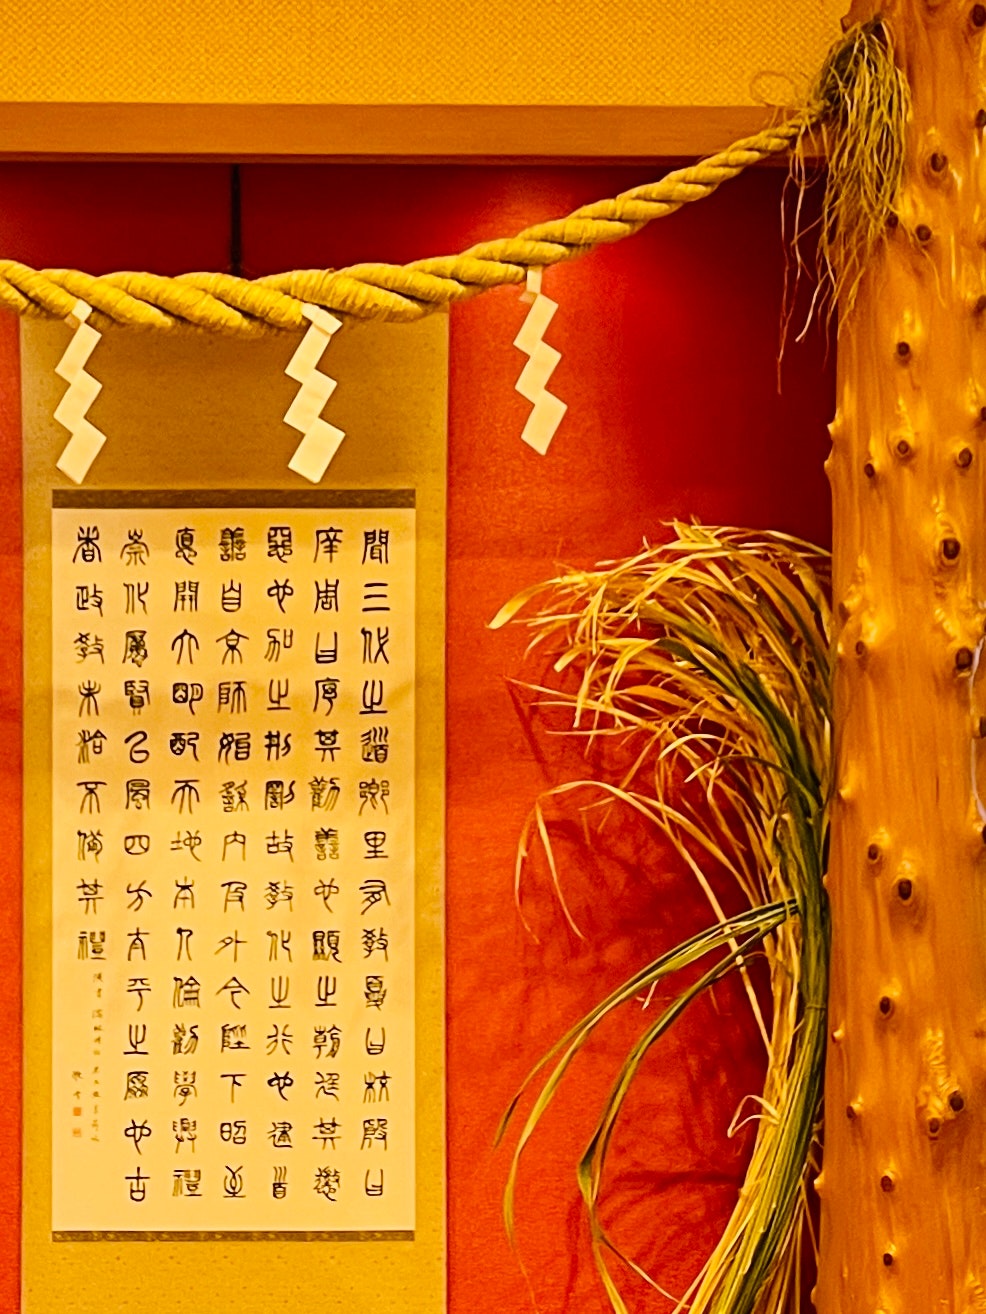 聞三代之道鄉里有教夏曰校殷曰
庠周曰序其勸善也顯之朝廷其懲
惡也加之刑罰故教化之行也建首
善自京師始繇內及外今陛下昭至
悳開大明配天地本人倫勸學興禮
崇化厲賢以風四方太平之原也古
者政教未洽不備其禮